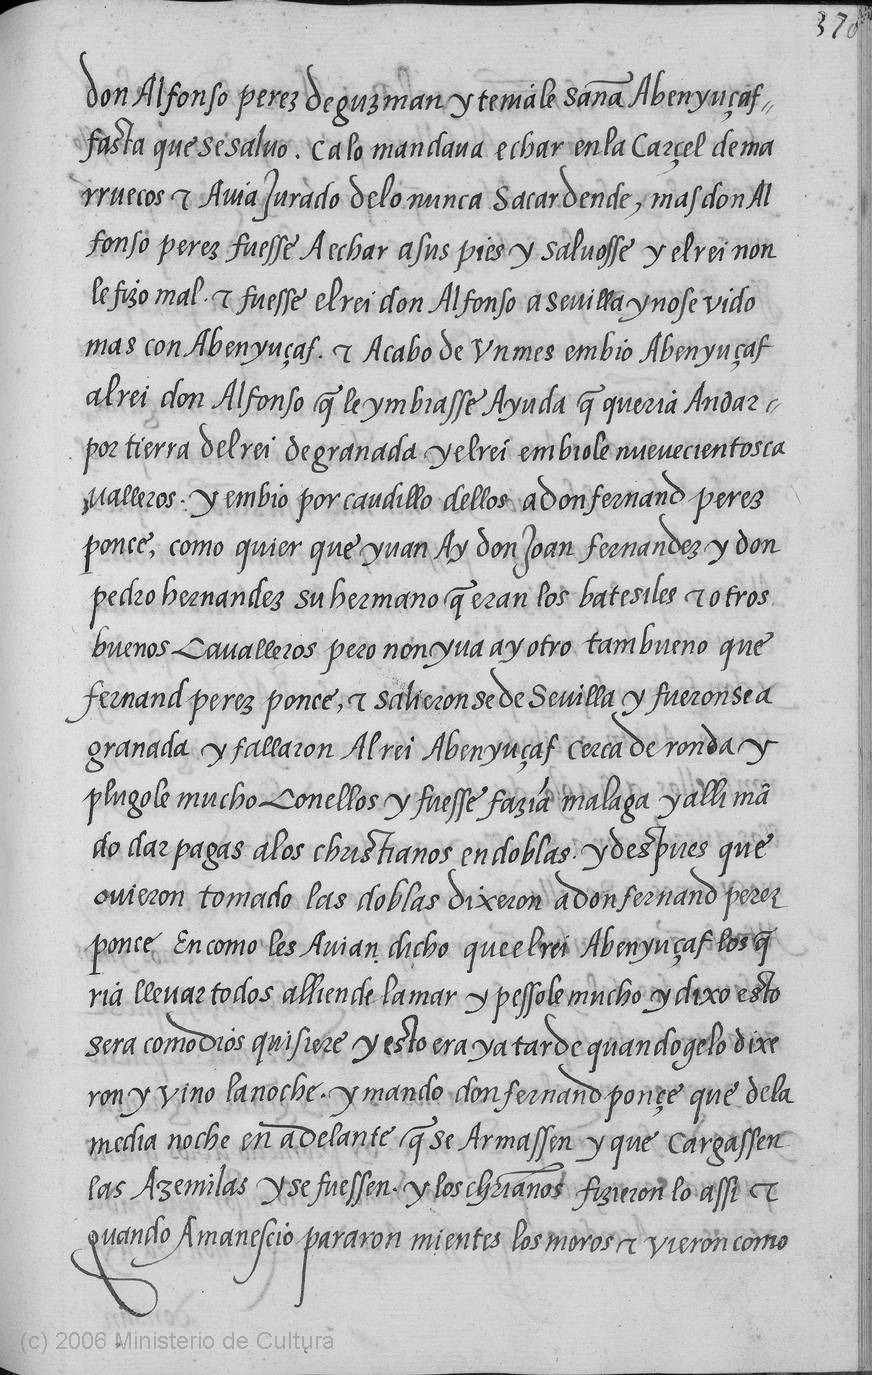 370
don Alfonso perez deguzman y temále sañā Abenyuçaf〃
fasta que sesaluo. Ca lo mandaua echar en la Carçel dema
rruecos ⁊ Auia Jurado delo nunca Sacar dende, mas don Al
fonso perez fuesse A echar a sus pies y saluosse y el rei non
le fizo mal. ⁊ fuesse el rei don Alfonso a seuilla y no se vido
mas con Abenyuçaf. ⁊ Acabo de Vn mes embio Abenyuçaf
al rei don Alfonso q̄ le ymbiasse Ayuda q̄ queriá Andar 〃
por tierra del rei de granada y el rei embiole nueuecientos ca
ualleros. y embio por caudillo dellos a don fernand perez
ponce, como quier que yuan Ay don Joan fernandez y don
pedro hernandez su hermano q̄ eran los batesiles ⁊ otros
buenos Caualleros pero non yua ay otro tam bueno que
fernand perez ponce, ⁊ salieronse de Seuilla y fueronse a
granada y fallaron Al rei Abenyuçaf cerca de ronda y
plugole mucho Con ellos y fuesse faziá malaga y alli mā
do dar pagas alos christianos en doblas. y despues que
ouieron tomado las doblas dixeron a don fernand perez
ponce En como les Auian dicho que el rei Abenyuçaf los q̄
riá lleuar todos alliende la mar y pessole mucho y dixo esto
sera como diós quisiere y esto era ya tarde quando gelo dixe
ron y vino la noche. y mando don fernand ponçe que dela
media noche en adelante q̄ se Armassen y que Cargassen
las Azemilas y se fuessen. y los chrianōs fizieron lo assi ⁊
quando Amanescio pararon mientes los moros ⁊ vieron como
(c) 2006 Ministerio de Cultura